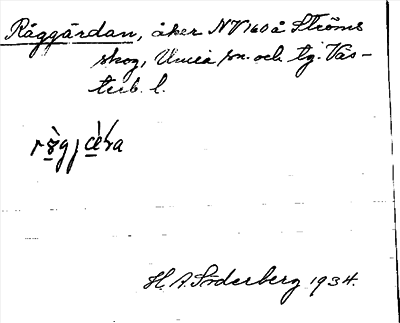 Råggärdan, åker NV160å Ströms
skog, Umeå sn. och tg. Väs-
terb. l.
H. A. Söderberg 1934.